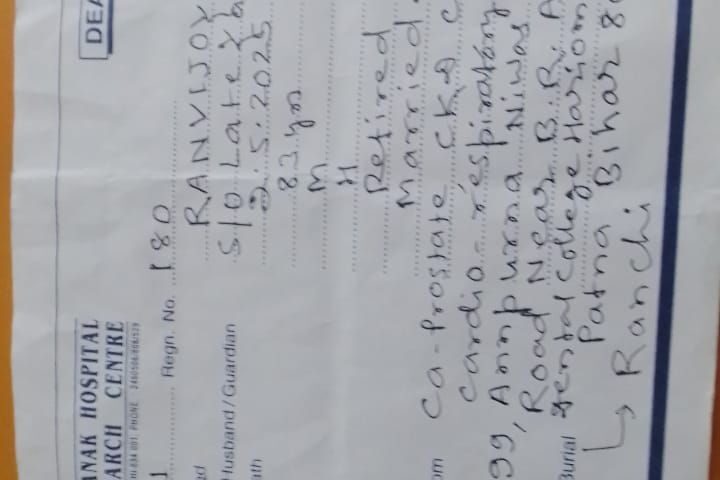 DEA
ANAK HOSPITAL
ARCH CENTRE
Regn. No. 180
RANVIJOY
Husband/Guardian S/O Late
.5.2025
83 yrs
M
H
Retired
Married
Ca-Prostate CKD
Cardio-respiratory
99, Annpurna Niwas
Road Near B.R. A
Dental College Hariom
Patna Bihar 8
Burial
Ranchi